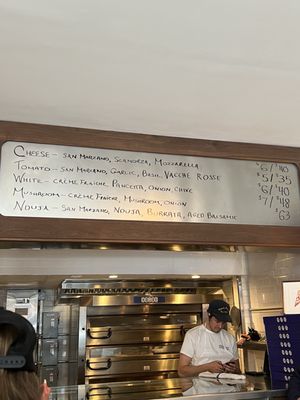 CHEESE - SAN MARZANO, SCAMORZA, MOZZARELLA $6/$40
TOMATO - SAN MARZANO, GARLIC, BASIL, VACCHE ROSSE $5/$35
WHITE - CRÈME FRAÎCHE, PANCETTA, ONION, CHIVE $6/$40
MUSHROOM - CRÈME FRAÎCHE, MUSHROOM, ONION $7/$48
NDUJA - SAN MARZANO, NDUJA, BURRATA, AGED BALSAMIC $63